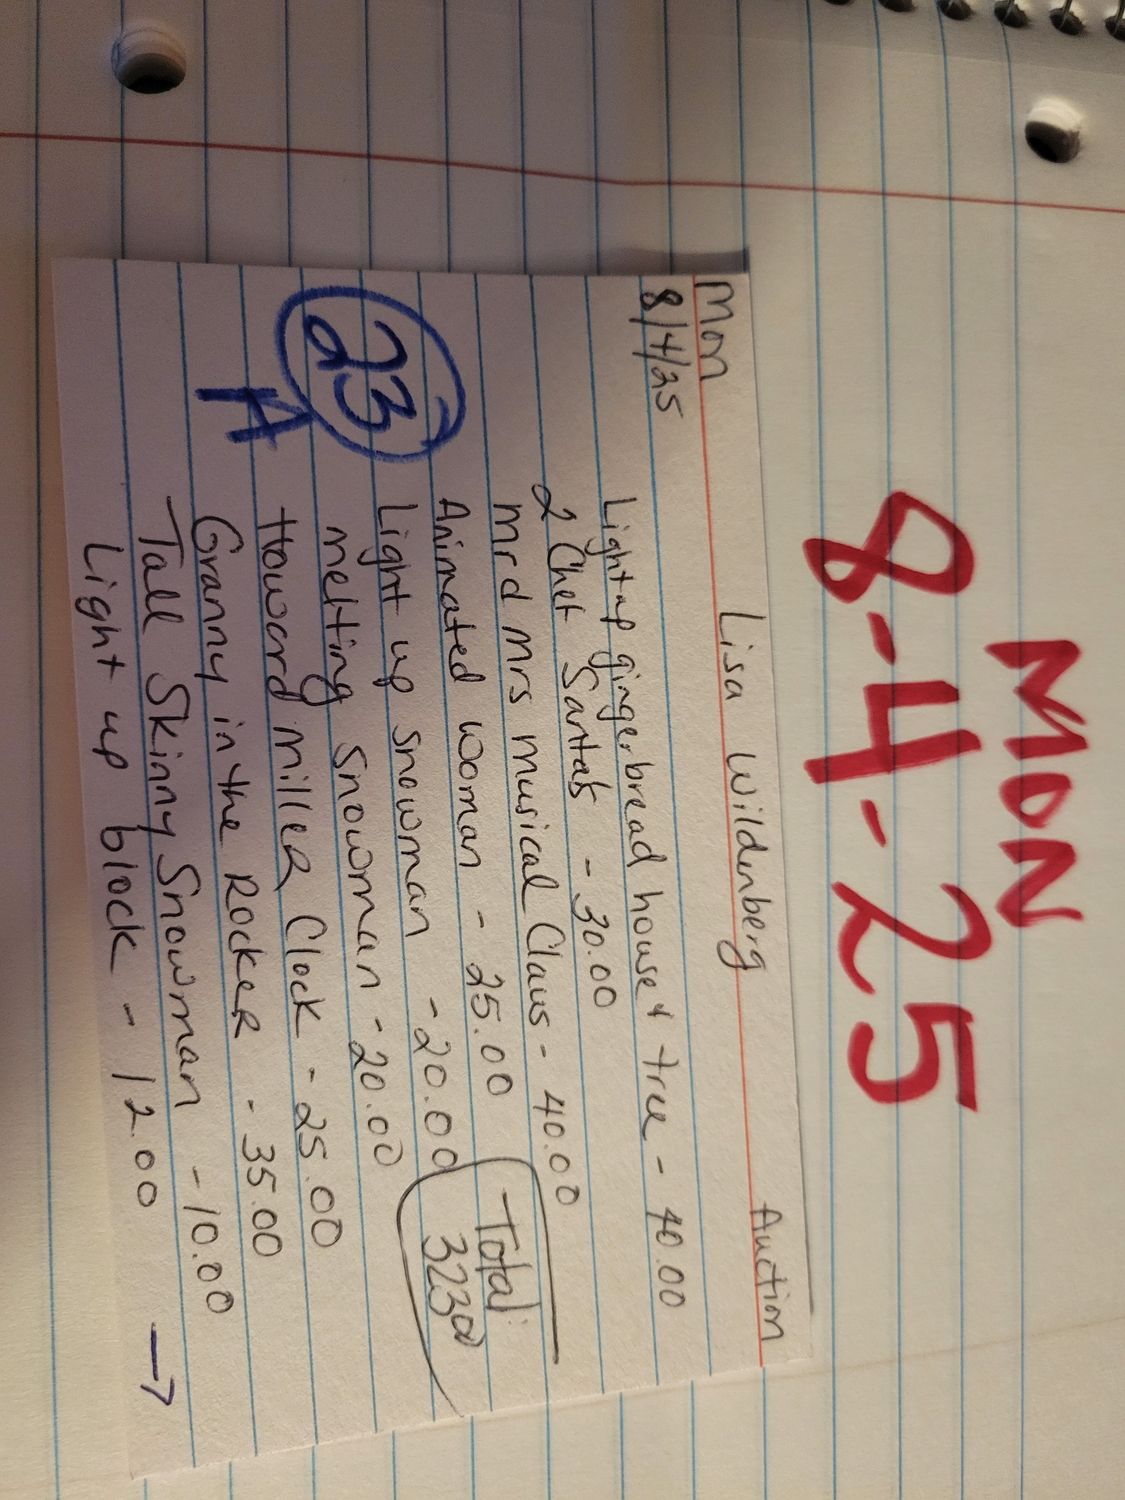 MON
8-4-25
Mon Lisa Wildenberg Auction
8/4/25
Light up gingerbread house & tree - 40.00
2 Chef Santas - 30.00
Mr d Mrs musical Claus - 40.00
Animated woman - 25.00
Light up snowman - 20.00
melting snowman - 20.00
Howard Miller Clock - 25.00
Granny in the Rocker - 35.00
Tall Skinny Snowman - 10.00
Light up block - 12.00 →
23
A
Total:
32300